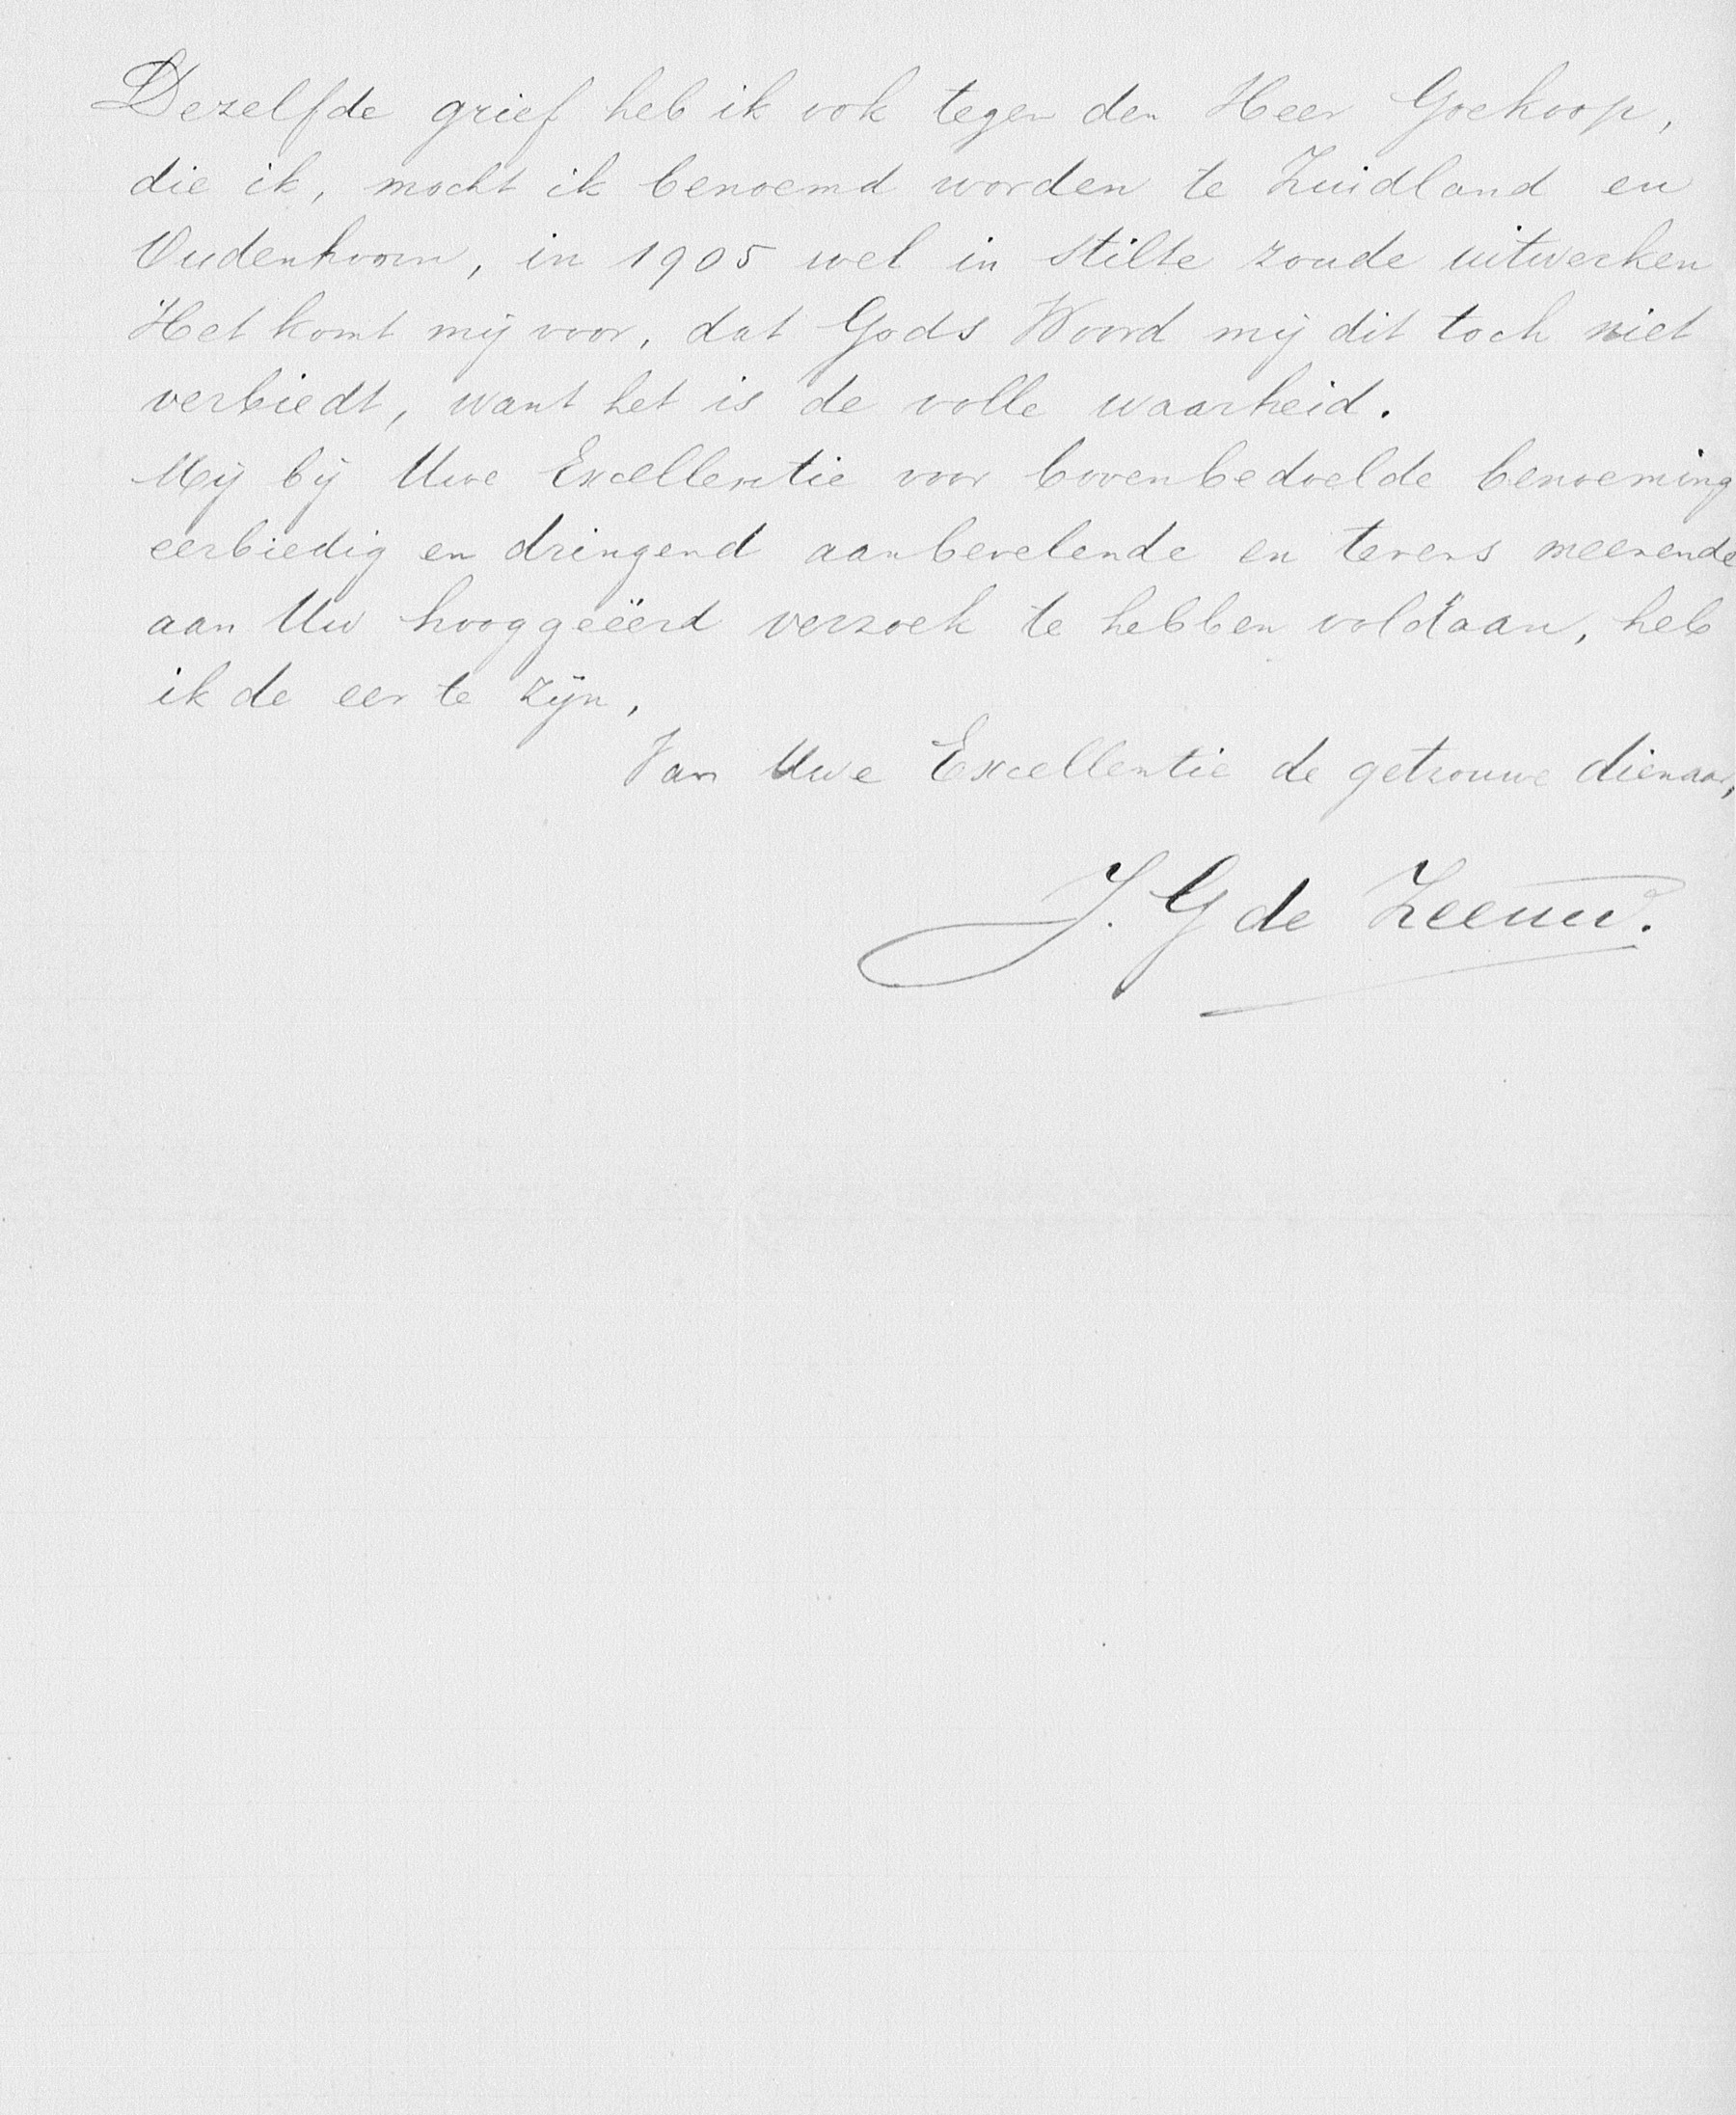 Dezelfde grief heb ik ook tegen den Heer Goekoop,
die ik, mocht ik benoemd worden te Zuidland en
Oudenhoorn, in 1905 wel in stilte zoude uitwerken
Het komt mij voor, dat Gods Woord mij dit toch niet
verbiedt, want het is de volle waarheid.
Mij bij Uwe Excellentie voor bovenbedoelde benoeming
eerbiedig en dringend aanbevelende en tevens meenende
aan Uw hooggeëerd verzoek te hebben voldaan, heb
ik de eer te zijn,
Van Uwe Excellentie de getrouwe dienaar,
J. G de Zeeuw.